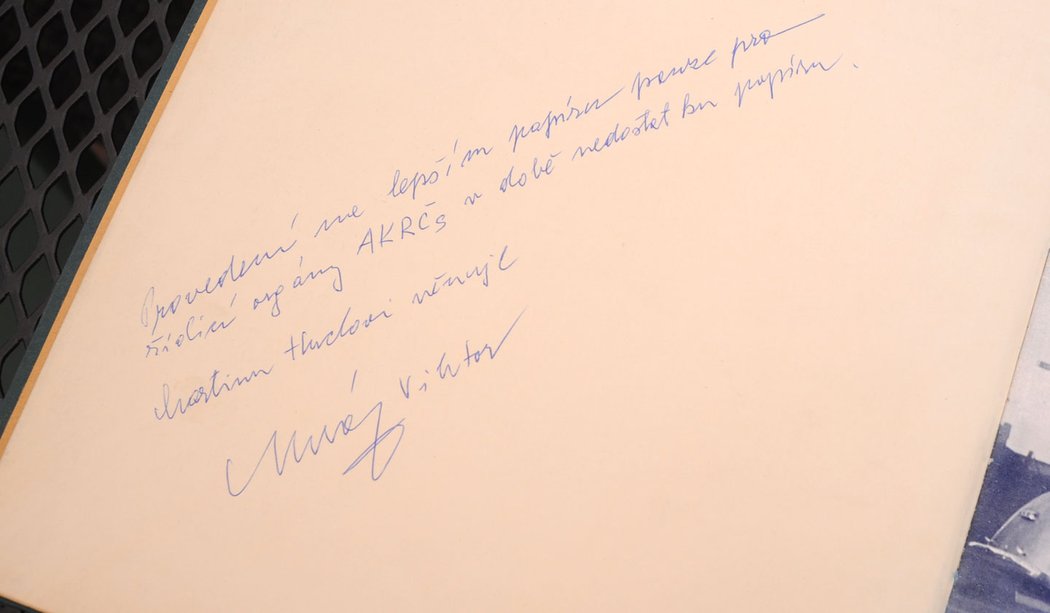 Provedení na lepším papíru pouze pro
řídící orgány AKRČs v době nedostatku papíru.
Martinu Hudovi věnuje
Viktor